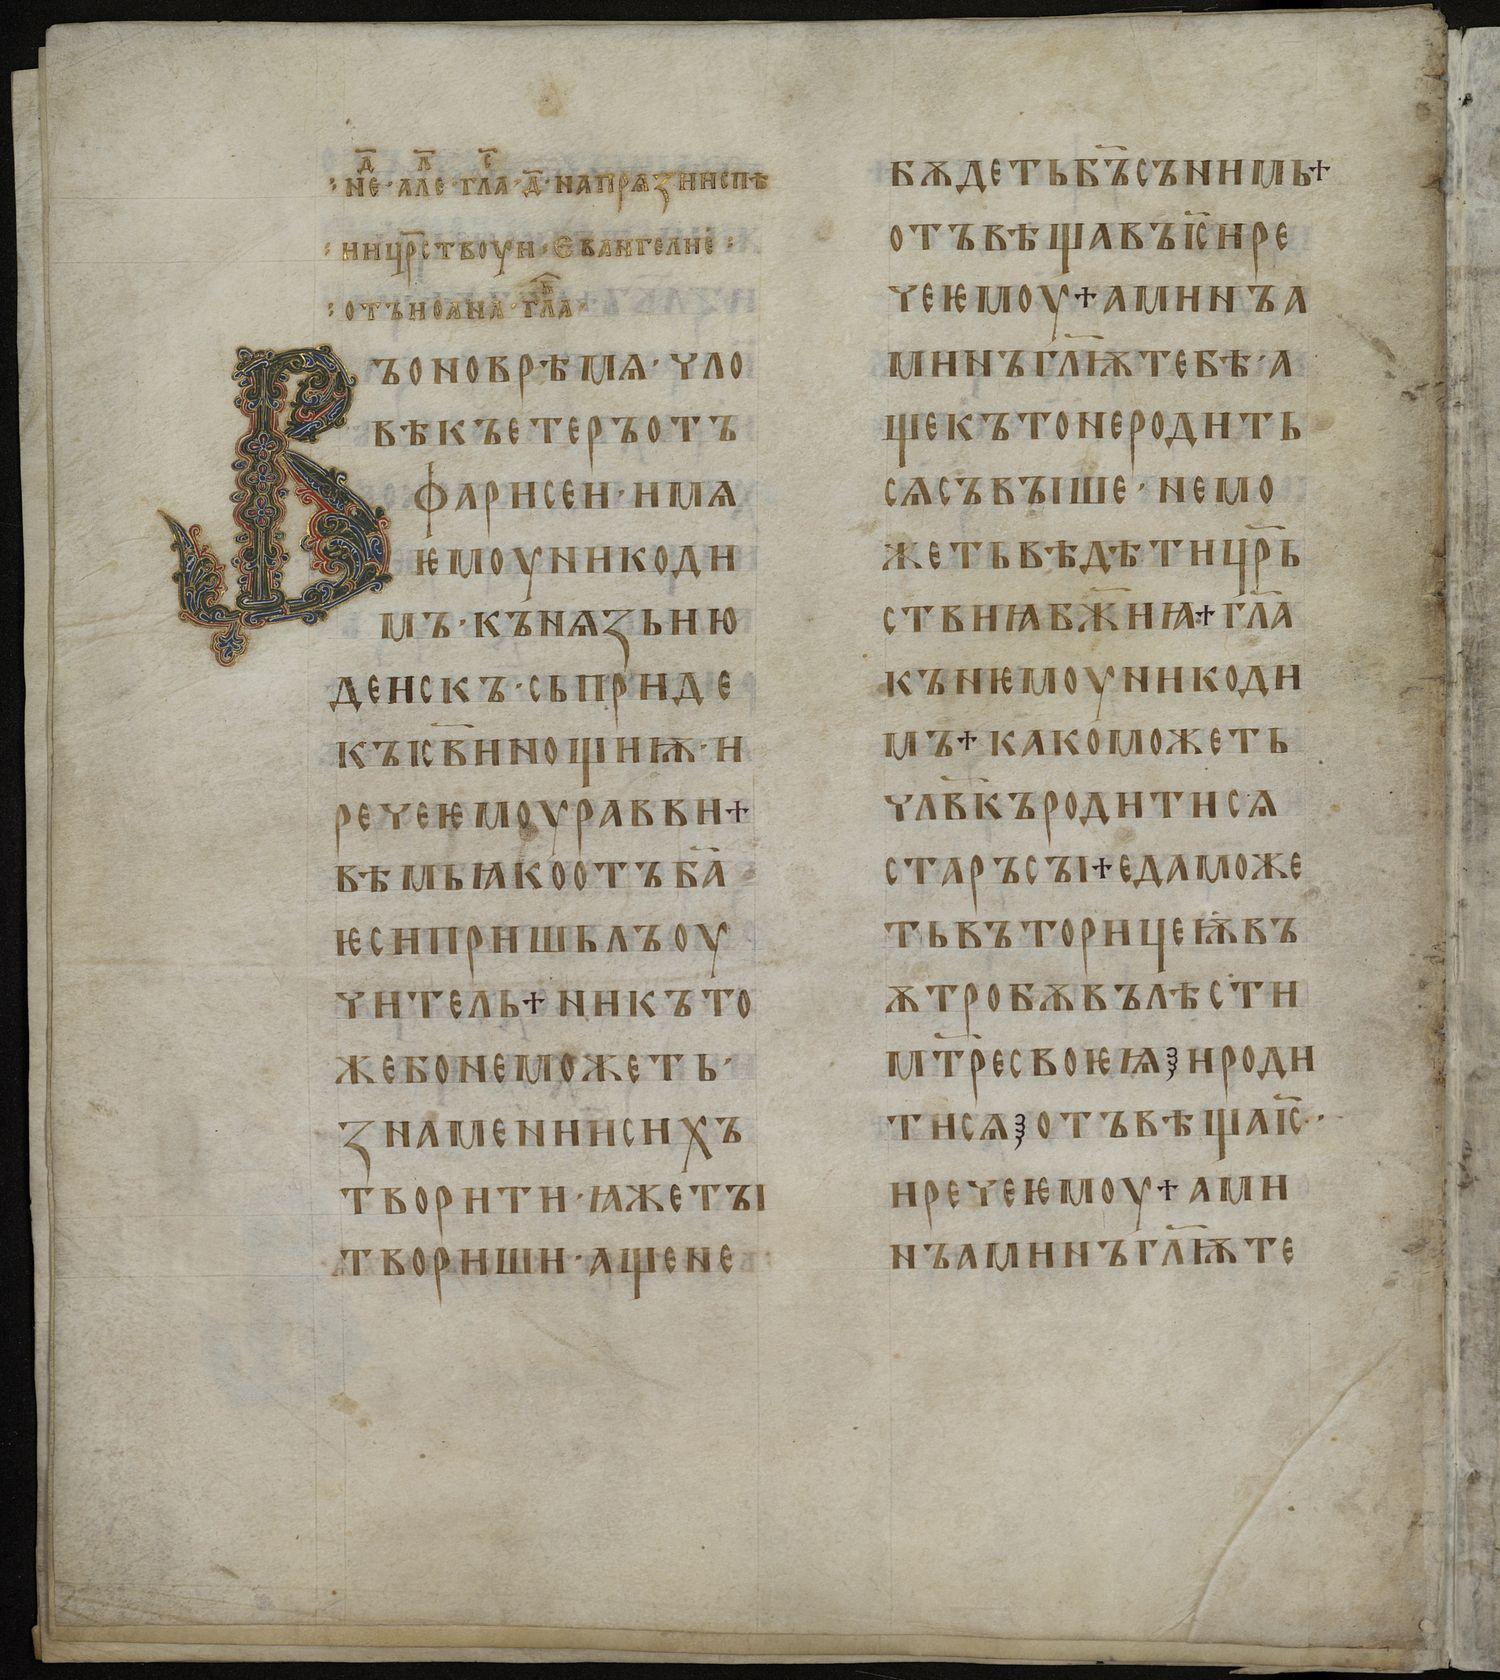 :не҃д · але҃л · гла҃с · д҃ · напрѧзниспѣ
:ници҃рствоуи · Єваньгелиѥ :
:отъиоана · гла҃в ·
Въоноврѣмѧ · Ꙋло
вѣкъетеръотъ
фарисеи · имѧ
ѥмоуникоди
мъ · кънѧзьию
деискъ · сьприде
къІс҃винощиѭ · и
речеѥмоуравви+
вѣмьꙗкоотъба҃
ѥсипришьлъоу
читель+никъто
жебонеможеть ·
знамениисихъ
творити · ꙗжеты
твориши · ащене
бѫдетьб҃ъсънимь+
отъвѣщавъІс҃ире
чеѥмоу+аминъа
минъгл҃ѭтебѣ · а
щекътонеродить
сѧсъвыше · немо
жетьвѣдѣтицр҃ь
ствиꙗбж҃иꙗ+гл҃а
кънѥмоуникоди
мъ+какоможеть
члв҃къродитисѧ
старъсы+едаможе
тьвъторицеѭвъ
ѫтробѫвълѣсти
мт҃ресвоѥꙗ ҙ ироди
тисѧ ҙ отъвѣщаІс҃ ··
иречеѥмоу+ами
нъаминъгл҃ѭте